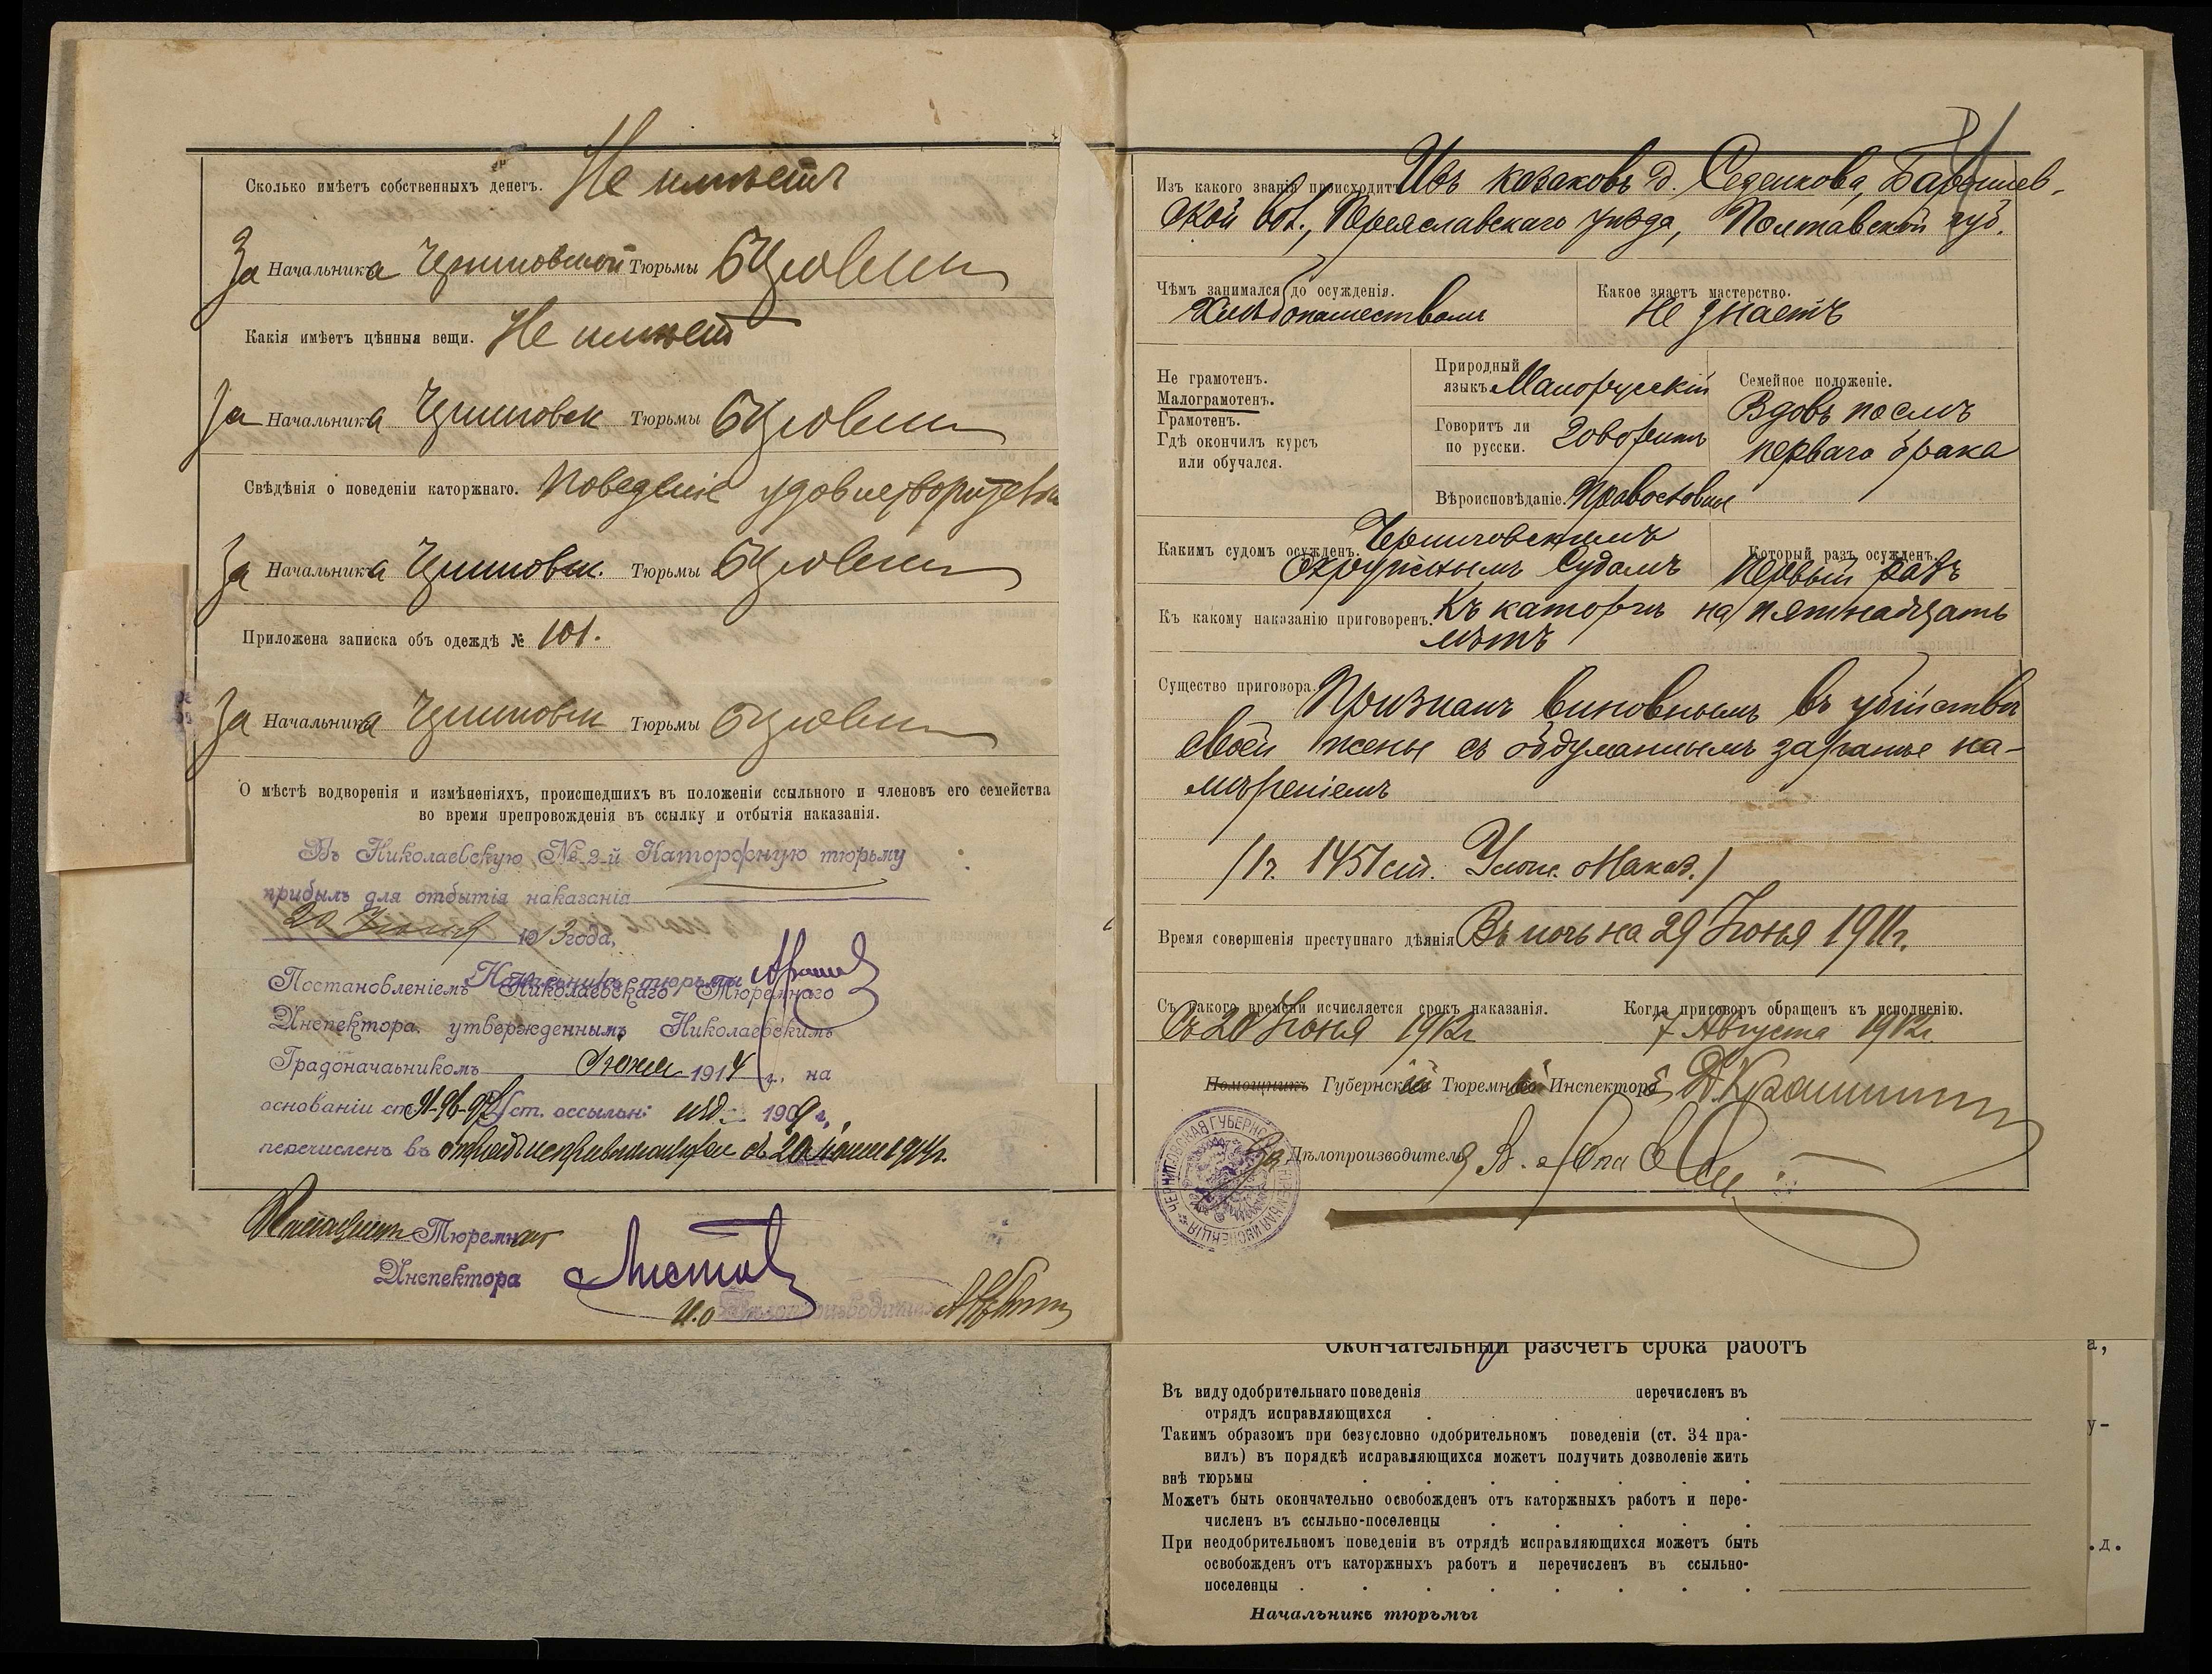 Сколько имѣетъ собственныхъ денегъ. Не имѣетъ
За Начальника Черниговской Тюрьмы
Какія имѣетъ цѣнныя вещи. Не имѣетъ
За Начальника Черниговск Тюрьмы
Свѣдѣнія о поведеніи каторжнаго. Поведенія удовлетворительн
За Начальника Черниговск. Тюрьмы
Приложена записка объ одеждѣ № 101.
За Начальника Черниговск Тюрьмы
О мѣстѣ водворенія и измѣненіяхъ, происшедшихъ въ положеніи ссыльного и членовъ его семейства
во время препровожденія въ ссылку и отбытія наказанія.
Въ Николаевскую № 2-й Каторжную тюрьму
прибылъ для отбытія наказанія
20 1913 года,
Начальникъ тюрьмы
Постановленіемъ Николаевскаго Тюремнаго
Инспектора. утвержденнымъ Николаевскимъ
Градоначальникомъ 1914 г., на
основаніи ст. Уст. оссыльн: изд. 1909 г.,
перечисленъ въ отрядъ исправляющихся съ 20 1914г.
Помощникъ Тюремнаго
Инспектора
И.о Дѣлопроизводителя
Изъ какого званія происходитъ Изъ казаковъ д. Селенкова, Барышев-
ской вол., Переяславскаго уѣзда, Полтавской губ.
Чѣмъ занимался до осужденія. Какое знаетъ мастерство.
Хлѣбопашествомъ не знаетъ
Не грамотенъ.
Малограмотенъ.
Грамотенъ.
Гдѣ окончилъ курсъ
или обучался.
Природный
языкъ Малорусскій
Говоритъ ли
по русски. Говоритъ
Вѣроисповѣданіе. Православн
Семейное положеніе.
Вдовъ послѣ
перваго брака
Какимъ судомъ осужденъ. Черниговскимъ
Окружнымъ Судомъ
Который разъ осужденъ.
Первый разъ
Къ какому наказанію приговоренъ. Къ каторгѣ на пятнадцать
лѣтъ
Существо приговора. Признанъ виновнымъ въ убійствѣ
своей жены съ обдуманнымъ заранѣе на-
мѣреніемъ
/1 ч. 1451 ст. Улож. о Наказ./
Время совершенія преступнаго дѣянія Въ ночь на 29 Іюня 1911г.
Съ какого времени исчисляется срокъ наказанія. Когда приговоръ обращенъ къ исполненію.
Съ 20 Іюня 1912г 7 Августа 1912г.
Помощникъ Губернскій Тюремный Инспекторъ
За Дѣлопроизводителя
ЧЕРНИГОВСКАЯ ГУБЕРНСКАЯ ТЮРЕМНАЯ ИНСПЕКЦІЯ
Окончательный разсчетъ срока работъ
Въ виду одобрительнаго поведенія перечисленъ въ
отрядъ исправляющихся
Такимъ образомъ при безусловно одобрительномъ поведеніи (ст. 34 пра-
вилъ) въ порядкѣ исправляющихся можетъ получить дозволеніе жить
внѣ тюрьмы
Можетъ быть окончательно освобожденъ отъ каторжныхъ работъ и пере-
численъ въ ссыльно-поселенцы
При неодобрительномъ поведеніи въ отрядѣ исправляющихся можетъ быть
освобожденъ отъ каторжныхъ работъ и перечисленъ въ ссыльно-
поселенцы
Начальникъ тюрьмы
а,
у-
.д.